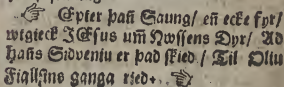 Epter þañ Saung/ eñ ecke fyr/
wtgieck JEsus um̃ Nwssens Dyr/ Ad
hañs Sidveniu er þad skied / Til Oliu
Fiallsins ganga ried.